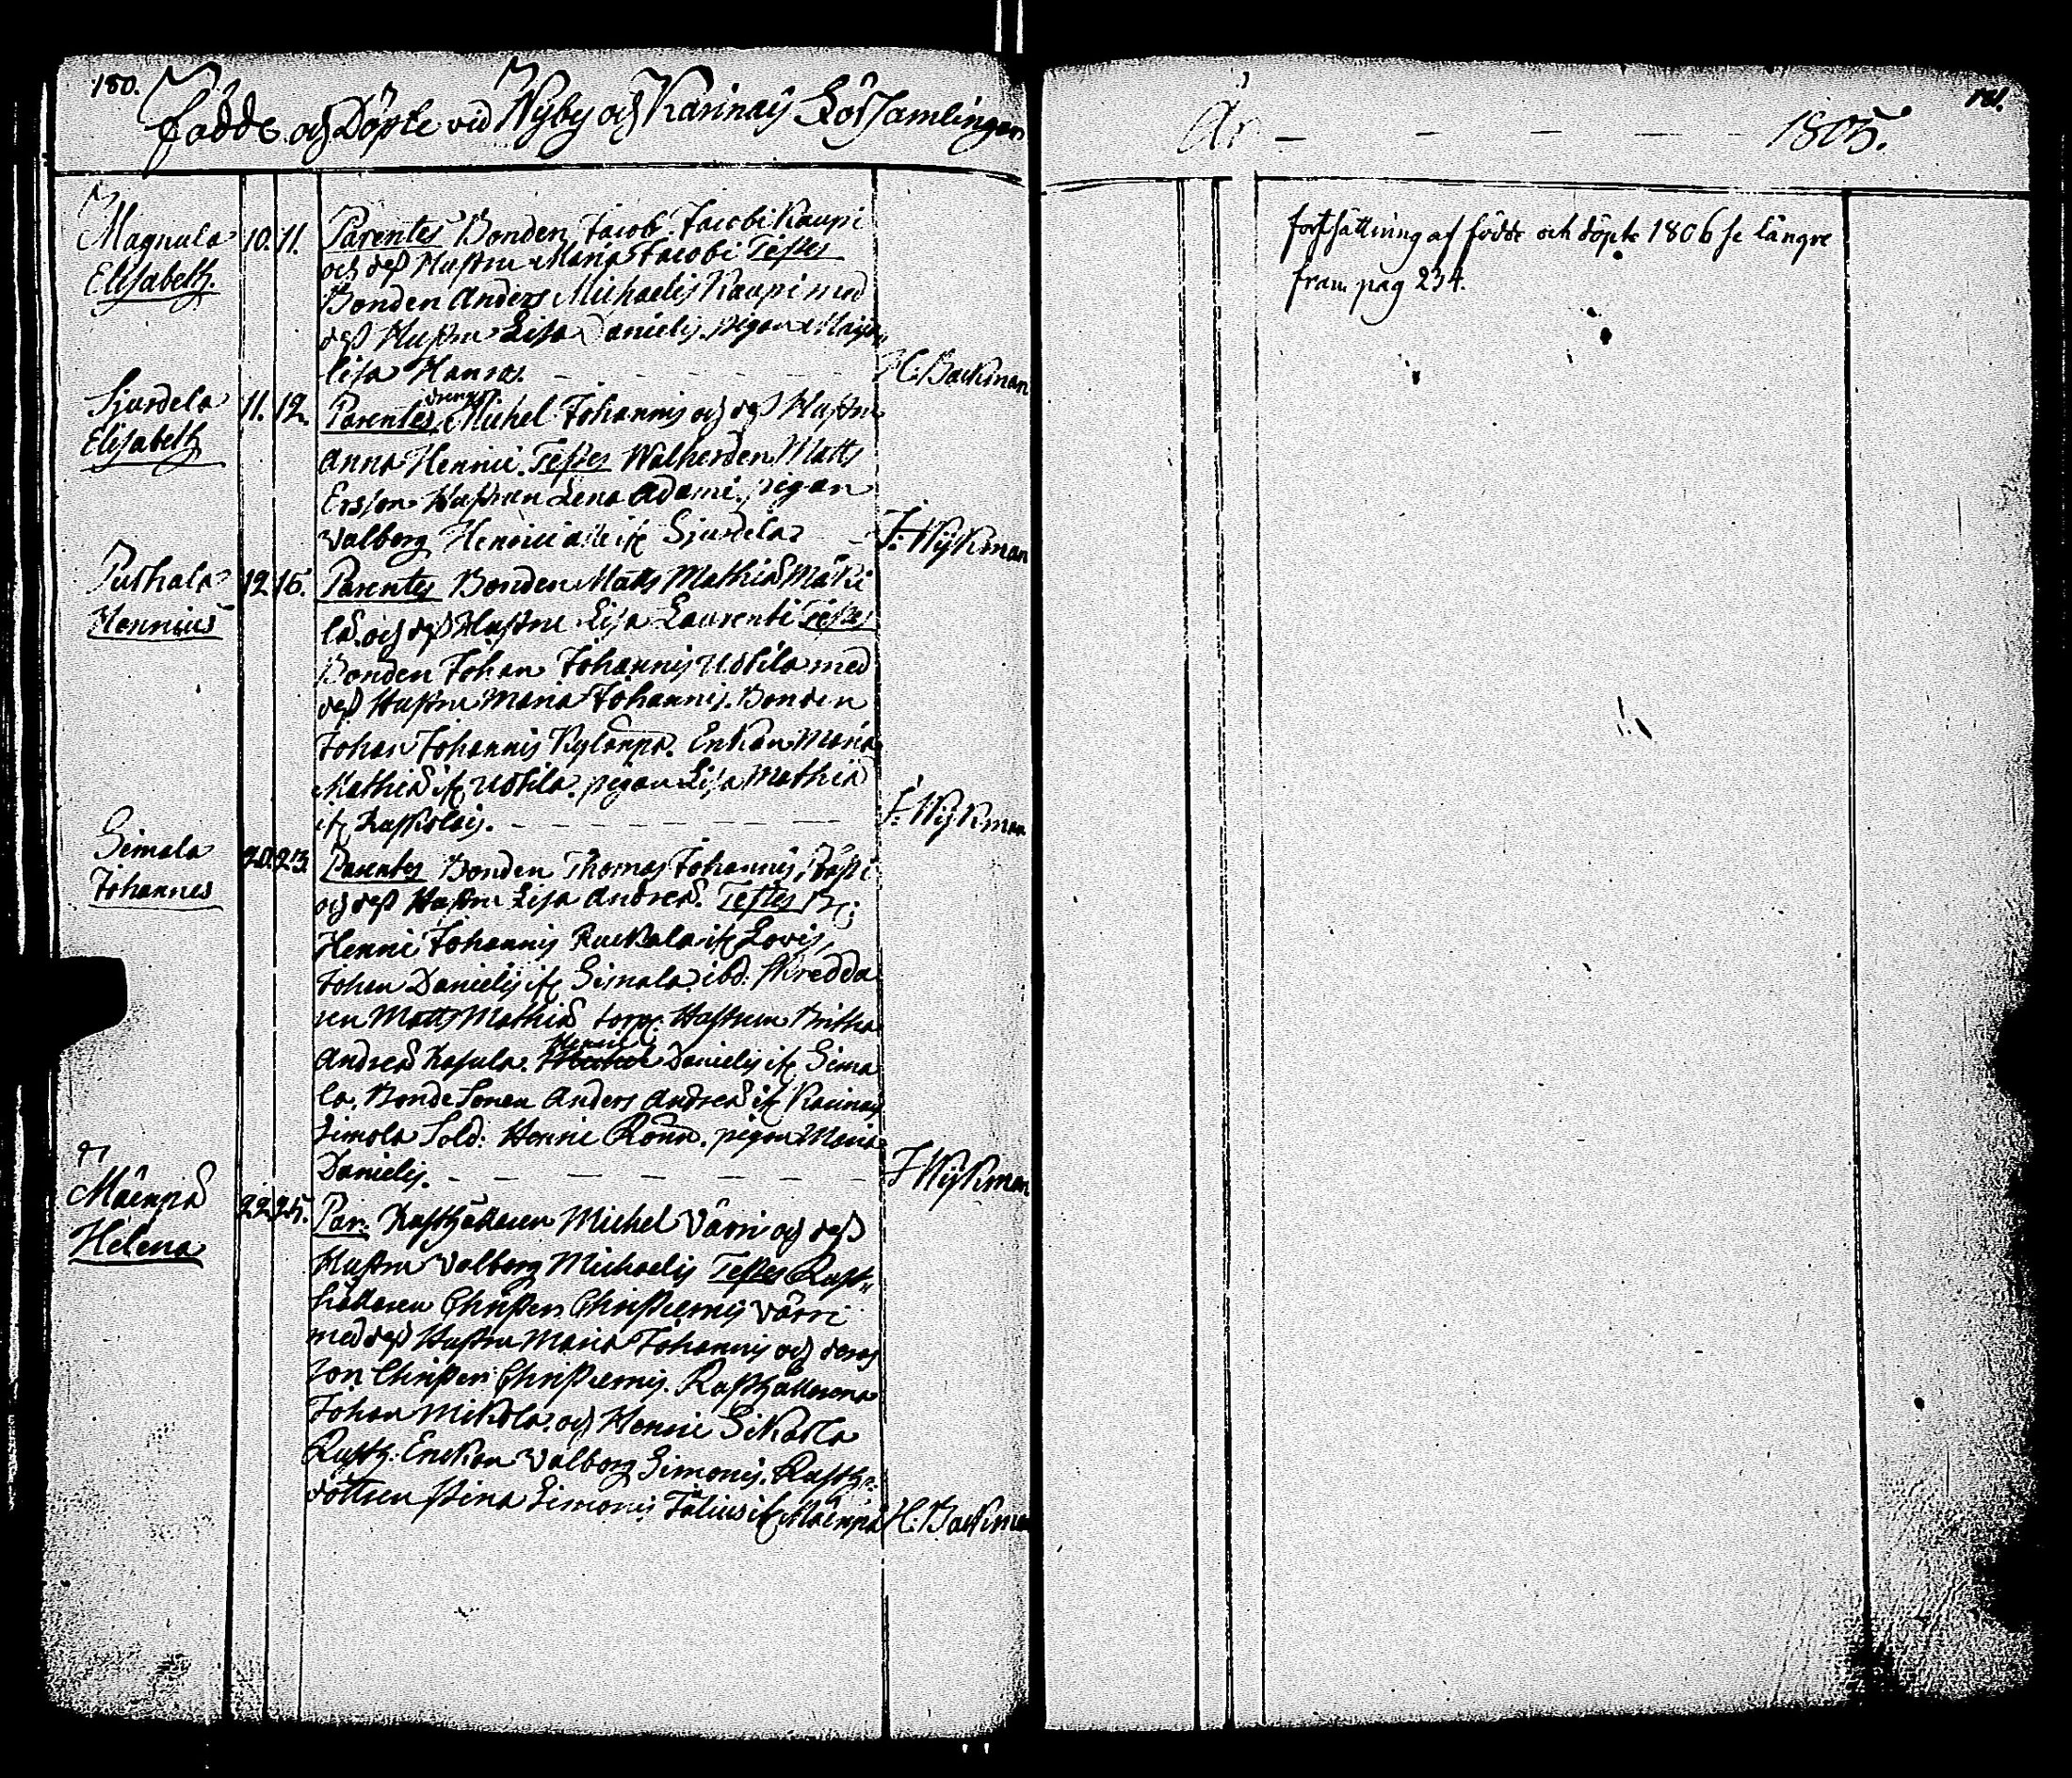 180.
Födde och Döpte vid Nyby och Karinais Församlingar
Magnula 10. 11. Parentes Bonden Jacob Jacobi Kaupi
Elisabeth. och dess Hustru Maria Jacobi Testes
Bonden Anders Michaelis Kaupi med
dess Hustru Lisa Danielis. pigan Maja
lisa Hansr. H: Backman
Sjurdela 11. 12. Parentes drengen Michel Johannis och dess Hustru
Elisabeth Anna Henrici. Testes Walherden Matts
Ersson Hustrun Lena Adami. pigan
Valborg Henrici alle ifr Sjurdela J: Wijkman
Purhala 12. 15. Parentes Bonden Matts Mathiæ Mäki
Henricus lä. och dess Hustru Lisa Laurenti Testes
Bonden Johan Johannis Uotila med
dess Hustru Maria Johannis. Bonden
Johan Johannis Kylänpä. Enkan Maria
Mathiæ ifr Uotila. pigan Lisa Mathiæ
ifr J: Wijkman
Simala 20. 23. Parentes Bonden Thomas Johannis
Johannes och dess Hustru Lisa Andreæ. Testes B:
Henric Johannis ifr
Johan Danielis ifr Simala. ibd: skredda
ren Matts Mathiæ torp: Hustrun Britha
Andreæ Henric Danielis ifr Sima
la. Bonde Sonen Anders Andreæ ifr Karinais
Simola Sold: Henric Rönn. pigan Maria
Danielis. J Wijkman
Mäenpä 22. 25. Par: Rusthållaren Michel Värri och dess
Helena Hustru Valborg Michaelis Testes Rust-
hållaren Christer Christierni Värri
med dess Hustru Maria Johannis och deras
son Christer Christierni. Rusthållarena
Johan Mikola och Henric Sikilä
Rusth: Enckan Valborg Simonis. Rusth:
dottren Stina Simonis Tälius ifr Mäenpä H: Backman
181.
År 1805.
fortsättning af födde och döpte 1806 se längre
fram pag 234.